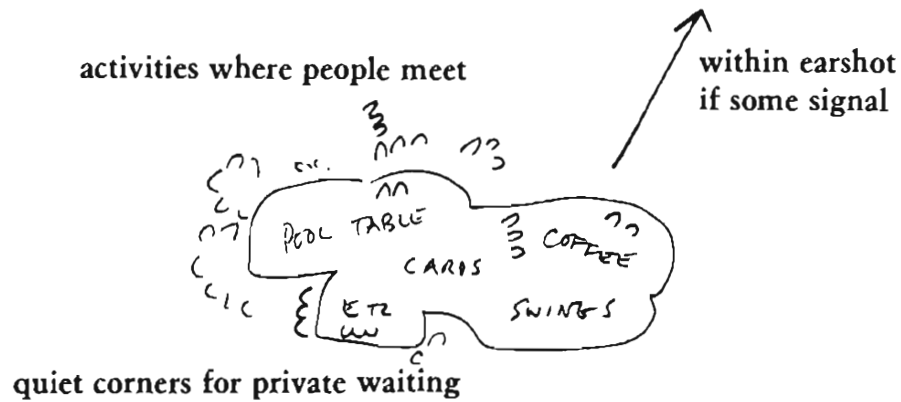 activities where people meet
within earshot
if some signal
POOL TABLE
COFFEE
CARDS
SWINGS
quiet corners for private waiting